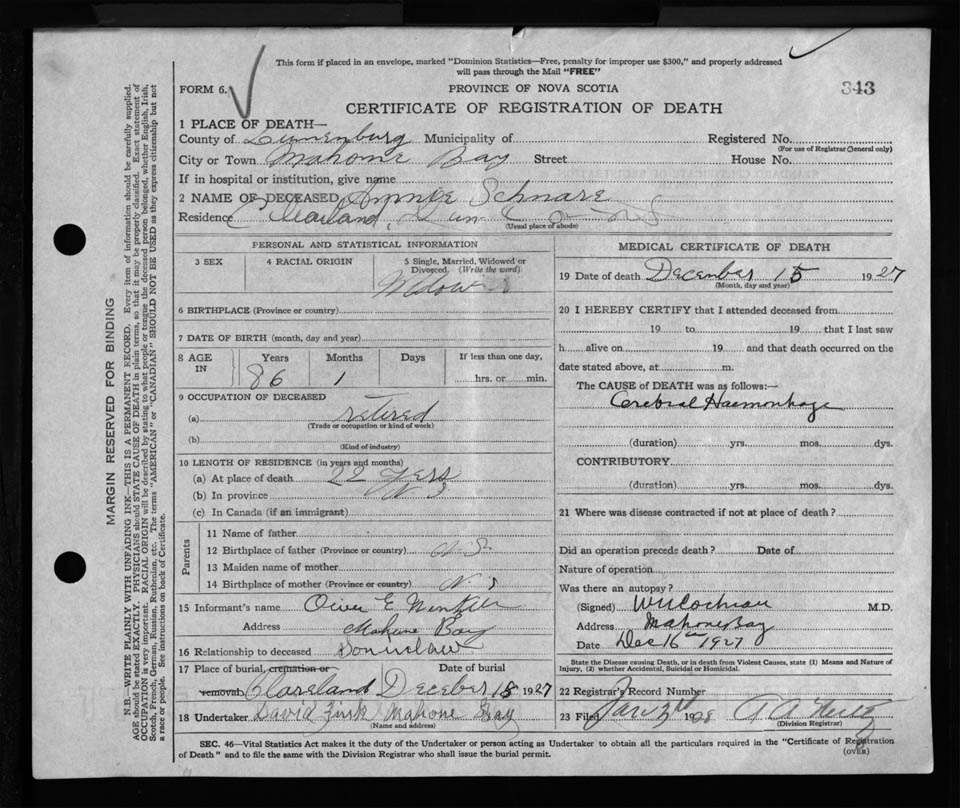 This form if placed in an envelope, marked "Dominion Statistics—Free, penalty for improper use $300," and properly addressed
will pass through the Mail "FREE"
FORM 6.
PROVINCE OF NOVA SCOTIA
343
CERTIFICATE OF REGISTRATION OF DEATH
1 PLACE OF DEATH—
County of Lunenburg Municipality of Registered No.
(For use of Registrar General only)
City or Town Mahone Bay Street House No.
If in hospital or institution, give name
2 NAME OF DECEASED Annie Schnare
Residence Clearland, Lun Co N S
(Usual place of abode)
PERSONAL AND STATISTICAL INFORMATION
3 SEX 4 RACIAL ORIGIN 5 Single, Married, Widowed or
Divorced. (Write the word)
Widow
6 BIRTHPLACE (Province or country)
7 DATE OF BIRTH (month, day and year)
8 AGE IN Years Months Days If less than one day,
86 1 hrs. or min.
9 OCCUPATION OF DECEASED
(a) retired
(Trade or occupation or kind of work)
(b)
(Kind of industry)
10 LENGTH OF RESIDENCE (in years and months)
(a) At place of death 22 yers
(b) In province N S
(c) In Canada (if an immigrant)
Parents
11 Name of father
12 Birthplace of father (Province or country) N.S.
13 Maiden name of mother
14 Birthplace of mother (Province or country) N. S
15 Informant's name E
Address Mahone Bay
16 Relationship to deceased Soninlaw
17 Place of burial, cremation or Date of burial
removal Clareland Deceber 18 1927
18 Undertaker David Mahone Bay
(Name and address)
MEDICAL CERTIFICATE OF DEATH
19 Date of death December 15 1927
(Month, day and year)
20 I HEREBY CERTIFY that I attended deceased from
19 to 19 that I last saw
h alive on 19 and that death occurred on the
date stated above, at m.
The CAUSE of DEATH was as follows:—
Cerebral Haemorrhage
(duration) yrs. mos. dys.
CONTRIBUTORY
(duration) yrs. mos. dys.
21 Where was disease contracted if not at place of death?
Did an operation precede death? Date of
Nature of operation
Was there an autopsy?
(Signed) Cochran M.D.
Address Mahone Bay
Date Dec 16th 1927
State the Disease causing Death, or in death from Violent Causes, state (1) Means and Nature of
Injury, (2) whether Accidental, Suicidal or Homicidal.
22 Registrar's Record Number
23 Filed Jan 1928
(Division Registrar)
SEC. 46—Vital Statistics Act makes it the duty of the Undertaker or person acting as Undertaker to obtain all the particulars required in the "Certificate of Registration
of Death" and to file the same with the Division Registrar who shall issue the burial permit.
(OVER)
MARGIN RESERVED FOR BINDING
N.B.—WRITE PLAINLY WITH UNFADING INK—THIS IS A PERMANENT RECORD. Every item of information should be carefully supplied.
AGE should be stated EXACTLY. PHYSICIANS should STATE CAUSE OF DEATH in plain terms, so that it may be properly classified. Exact statement of
OCCUPATION is very important. RACIAL ORIGIN will be described by stating to what people or tongue the deceased person belonged, whether English, Irish,
Scotch, French, German, Russian, Ruthenian, etc. The terms "AMERICAN" or "CANADIAN" SHOULD NOT BE USED as they express citizenship but not
a race or people. See instructions on back of Certificate.